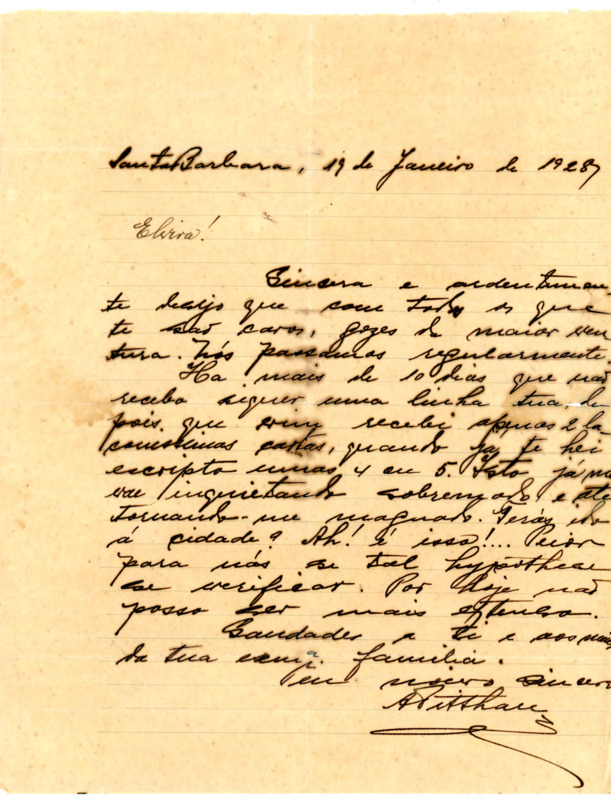 Santa Barbara, 19 de Janeiro de 1928
Elvira!
Sincera e ardentemen
te desejo que com todos os que
te são caros, gozes da maior ven
tura. Nós passamos regularmente.
Ha mais de 10 dias que não
recebo siquer uma linha tua, de
pois que vim recebi apenas 2 la
conicas cartas, quando já te hei
escripto umas 4 ou 5. Isto já me
vae inquietando sobremodo e até
tornando-me maguado. Terás ido
á cidade? Ah! é isso!...
para nós se tal hypothese
se verificar. Por hoje não
posso ser mais extenso.
Saudades a ti e aos mais
da tua exmª. familia.
Teu noivo sincero
APitthan